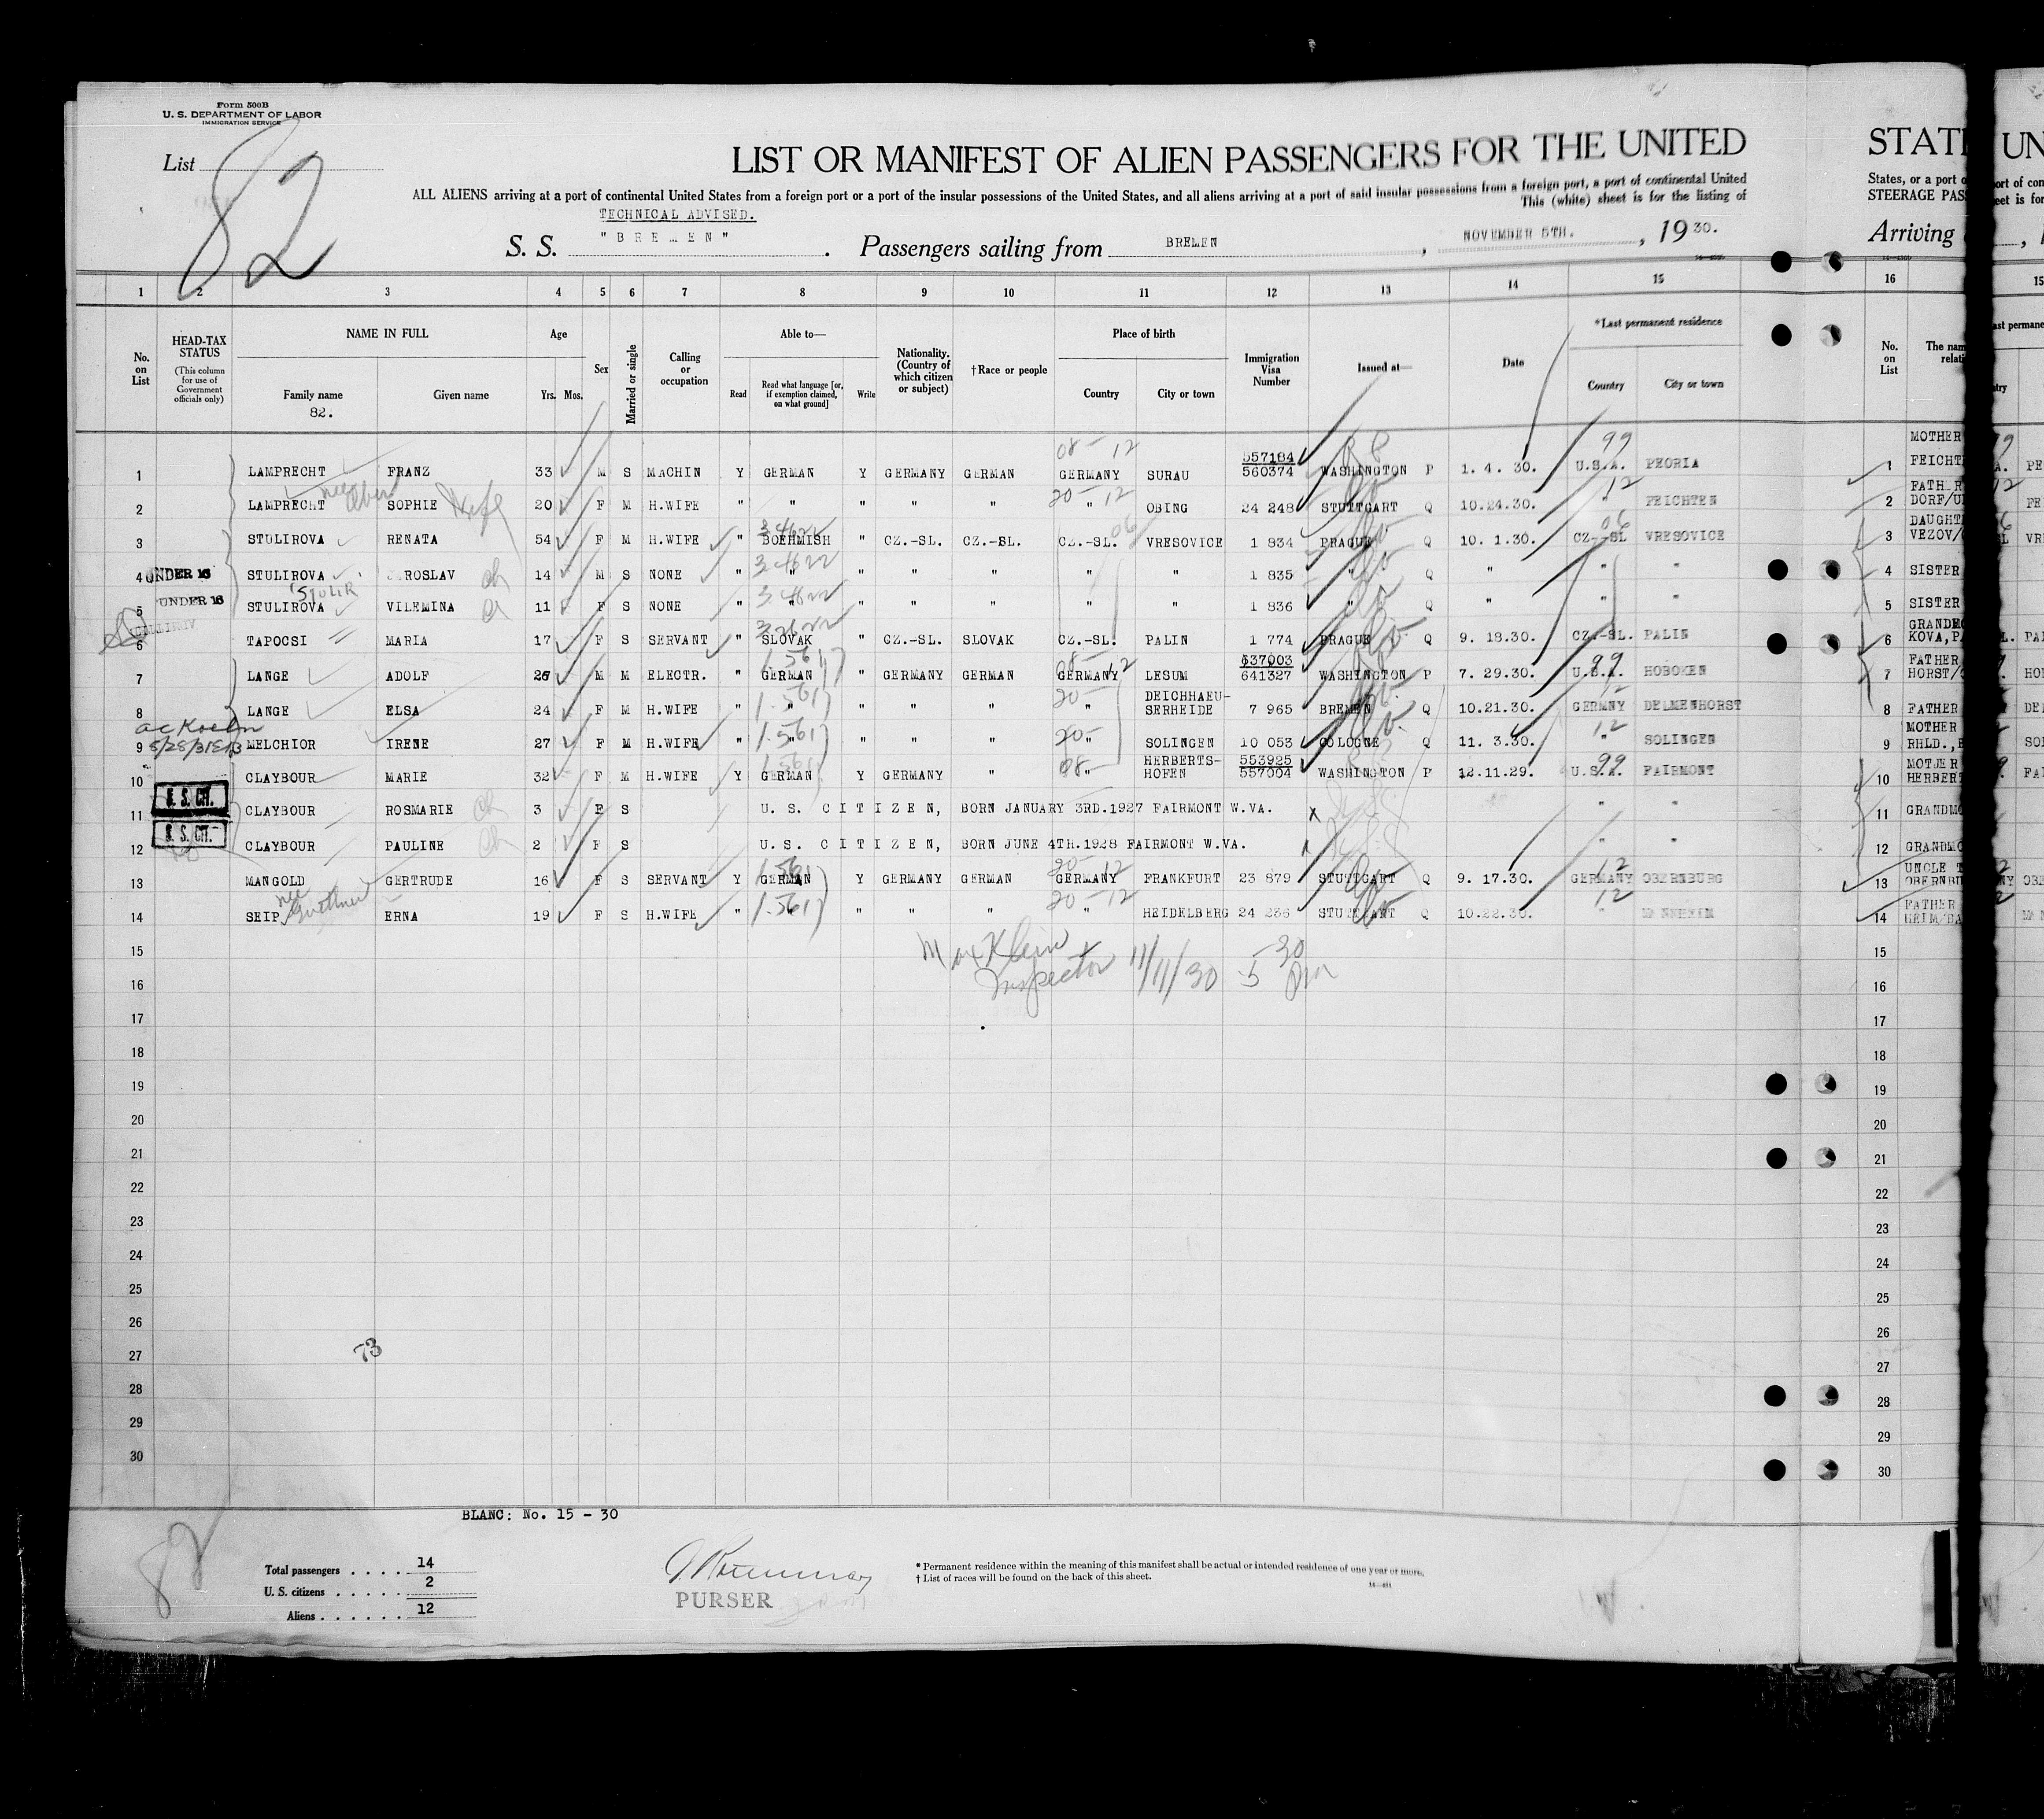 Form 500B
U. S. DEPARTMENT OF LABOR
IMMIGRATION SERVICE
List 82
LIST OR MANIFEST OF ALIEN PASSENGERS FOR THE UNITED
ALL ALIENS arriving at a port of continental United States from a foreign port or a port of the insular possessions of the United States, and all aliens arriving at a port of said insular possessions from a foreign port, a port of continental United
This (white) sheet is for the listing of
TECHNICAL ADVISED.
S. S. "BREMEN". Passengers sailing from BREMEN, NOVEMBER 5TH., 1930.
STAT
States, or a port o
STEERAGE PAS
Arriving
1 2 3 4 5 6 7 8 9 10 11 12 13 14 15 16
No. on List
HEAD-TAX STATUS
(This column for use of Government officials only)
NAME IN FULL
Family name
82.
Given name
Age
Yrs. Mos.
Sex
Married or single
Calling or occupation
Able to—
Read
Read what language [or, if exemption claimed, on what ground]
Write
Nationality. (Country of which citizen or subject)
†Race or people
Place of birth
Country
City or town
Immigration Visa Number
Issued at—
Date
*Last permanent residence
Country
City or town
No. on List
08-12 557184 99 MOTHER
1 LAMPRECHT FRANZ 33 M S MACHIN Y GERMAN Y GERMANY GERMAN GERMANY SURAU 560374 WASHINGTON P 1. 4. 30. U.S.A. PEORIA 1 FEICHT
nee 20-12 12
2 LAMPRECHT SOPHIE Wife 20 F M H.WIFE " " " " " " OBING 24 248 STUTTGART Q 10.24.30. " FEICHTEN 2 DORF/U
34622 06 06 DAUGHT
3 STULIROVA RENATA 54 F M H.WIFE " BOEHMISH " CZ.-SL. CZ.-SL. CZ.-SL. VRESOVICE 1 834 PRAGUE Q 10. 1.30. CZ.-SL VRESOVICE 3 VEZOV/
34622
4 UNDER 16 STULIROVA ROSLAV ch 14 M S NONE " " " " " " " 1 835 " Q " " " 4 SISTER
STOLIR 34622
5 UNDER 16 STULIROVA VILEMINA ch 11 F S NONE " " " " " " " 1 836 " Q " " " 5 SISTER
6 TAPOCSI MARIA 17 F S SERVANT " SLOVAK " CZ.-SL. SLOVAK CZ.-SL. PALIN 1 774 PRAGUE Q 9. 18.30. CZ.-SL. PALIN 6 KOVA,P
1.561 08-12 637003 99 FATHER
7 LANGE ADOLF 26 M M ELECTR. " GERMAN " GERMANY GERMAN GERMANY LESUM 641327 WASHINGTON P 7. 29.30. U.S.A. HOBOKEN 7 HORST/
1.561 20- DEICHHAEU- 12
8 LANGE ELSA 24 F M H.WIFE " " " " " " SERHEIDE 7 965 BREMEN Q 10.21.30. GERMNY DELMENHORST 8 FATHER
1.561 20- 12 MOTHER
9 MELCHIOR IRENE 27 F M H.WIFE " " " " " " SOLINGEN 10 053 COLOGNE Q 11. 3.30. " SOLINGEN 9 RHLD.,
1.561 08- HERBERTS- 553925 99 MOTJER
10 CLAYBOUR MARIE 32 F M H.WIFE Y GERMAN Y GERMANY " " HOFEN 557004 WASHINGTON P 12.11.29. U.S.A. FAIRMONT 10 HERBERT
11 U. S. CIT. CLAYBOUR ROSMARIE ch 3 F S U. S. CITIZEN, BORN JANUARY 3RD.1927 FAIRMONT W.VA. x " " 11 GRANDMO
12 U. S. CIT. CLAYBOUR PAULINE ch 2 F S U. S. CITIZEN, BORN JUNE 4TH.1928 FAIRMONT W.VA. " " 12 GRANDMO
1.561 20-12 12 UNCLE
13 MANGOLD GERTRUDE 16 F S SERVANT Y GERMAN Y GERMANY GERMAN GERMANY FRANKFURT 23 879 STUTTGART Q 9. 17.30. GERMANY OBERNBURG 13 OBERNBU
nee 1.561 20-12 12 FATHER
14 SEIP ERNA 19 F S H.WIFE " " " " " " HEIDELBERG 24 236 Q 10.22.30. " MANNHEIM 14 HEIM/BA
Max Klein
Inspector 11/11/30 5 30 PM
15 15
16 16
17 17
18 18
19 19
20 20
21 21
22 22
23 23
24 24
25 25
26 26
27 27
28 28
29 29
30 30
73
BLANC: No. 15 - 30
82
Total passengers 14
U. S. citizens 2
Aliens 12
PURSER
* Permanent residence within the meaning of this manifest shall be actual or intended residence of one year or more.
† List of races will be found on the back of this sheet.